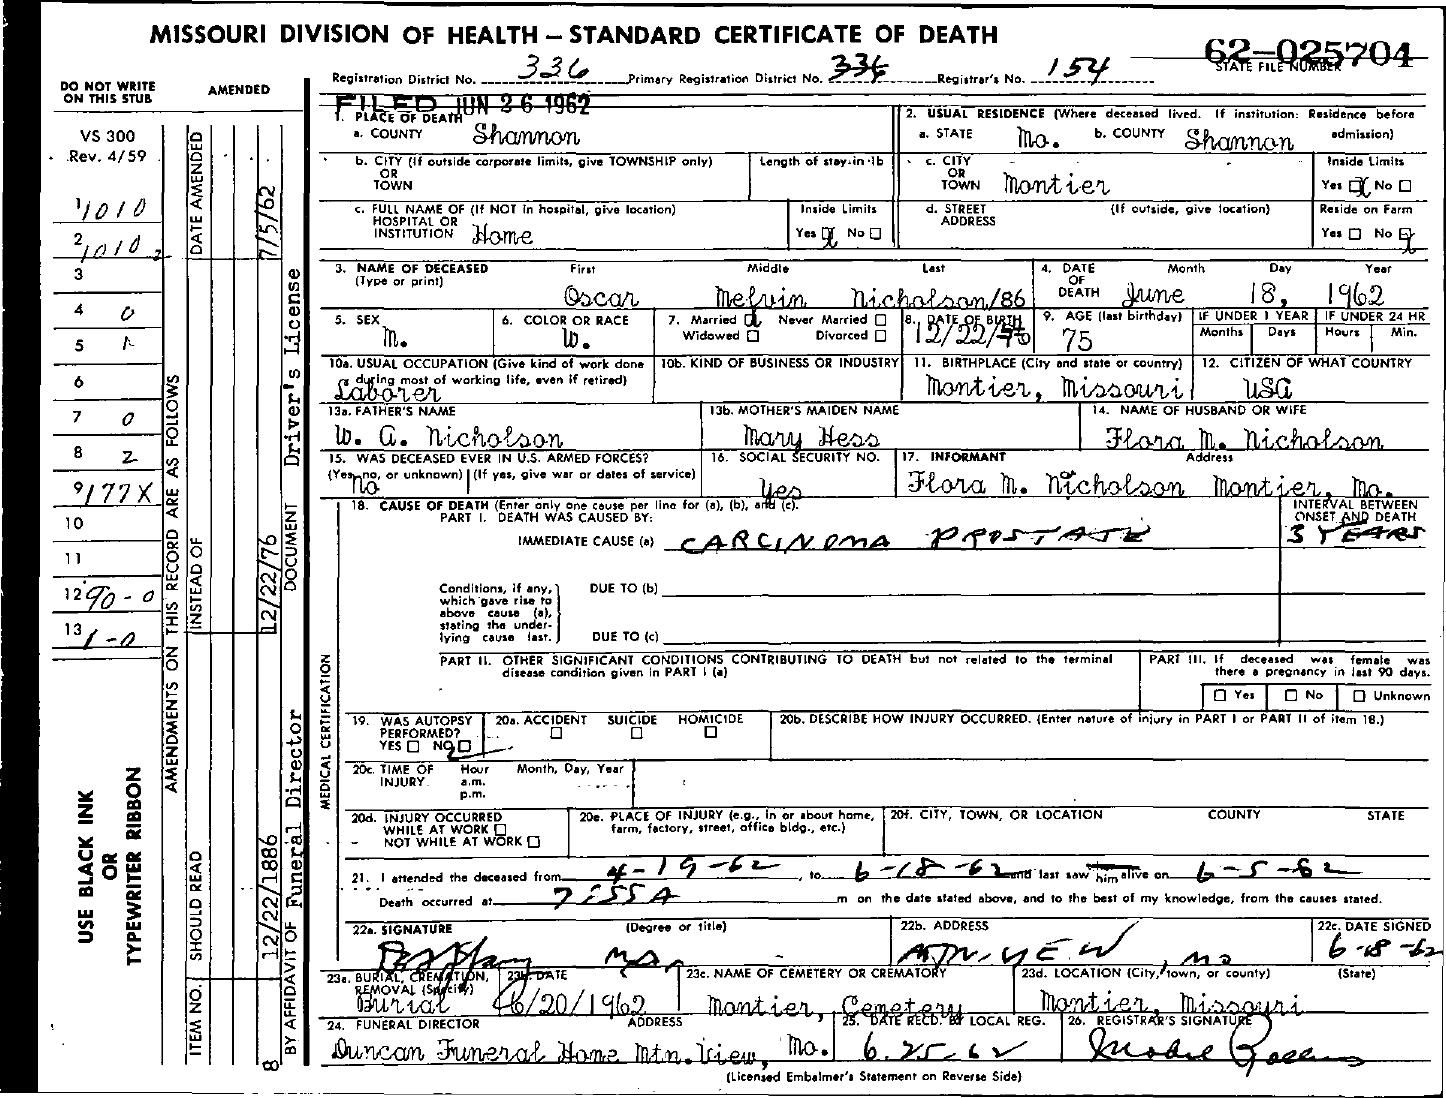 MISSOURI DIVISION OF HEALTH — STANDARD CERTIFICATE OF DEATH
62-025704
STATE FILE NUMBER
Registration District No. 336 Primary Registration District No. 336 Registrar's No. 154
DO NOT WRITE
ON THIS STUB
AMENDED
FILED JUN 26 1962
VS 300
Rev. 4/59
1 1010
2 1010 2
3
4 0
5 1
6
7 0
8 2
9 177X
10
11
12 90-0
13 1-0
USE BLACK INK
OR
TYPEWRITER RIBBON
AMENDMENTS ON THIS RECORD ARE AS FOLLOWS
ITEM NO. SHOULD READ INSTEAD OF DATE AMENDED
8 12/22/1886 12/22/76 7/5/62
BY AFFIDAVIT OF Funeral Director DOCUMENT Driver's License
1. PLACE OF DEATH
a. COUNTY Shannon
2. USUAL RESIDENCE (Where deceased lived. If institution: Residence before admission)
a. STATE Mo. b. COUNTY Shannon
b. CITY (If outside corporate limits, give TOWNSHIP only)
OR
TOWN
Length of stay in 1b
c. CITY
OR
TOWN Montier
Inside Limits
Yes X No
c. FULL NAME OF (If NOT in hospital, give location)
HOSPITAL OR
INSTITUTION Home
Inside Limits
Yes X No
d. STREET
ADDRESS
(If outside, give location)
Reside on Farm
Yes No X
3. NAME OF DECEASED
(Type or print)
First Middle Last
Oscar Melvin Nicholson/86
4. DATE
OF
DEATH
Month Day Year
June 18, 1962
5. SEX
M.
6. COLOR OR RACE
W.
7. Married X Never Married
Widowed Divorced
8. DATE OF BIRTH
12/22/76
9. AGE (last birthday)
75
IF UNDER 1 YEAR
Months Days
IF UNDER 24 HR
Hours Min.
10a. USUAL OCCUPATION (Give kind of work done
during most of working life, even if retired)
Laborer
10b. KIND OF BUSINESS OR INDUSTRY
11. BIRTHPLACE (City and state or country)
Montier, Missouri
12. CITIZEN OF WHAT COUNTRY
USA
13a. FATHER'S NAME
W. A. Nicholson
13b. MOTHER'S MAIDEN NAME
Mary Hess
14. NAME OF HUSBAND OR WIFE
Flora M. Nicholson
15. WAS DECEASED EVER IN U.S. ARMED FORCES?
(Yes, no, or unknown) (If yes, give war or dates of service)
no
16. SOCIAL SECURITY NO.
Yes
17. INFORMANT Address
Flora M. Nicholson Montier, Mo.
MEDICAL CERTIFICATION
18. CAUSE OF DEATH (Enter only one cause per line for (a), (b), and (c).
PART I. DEATH WAS CAUSED BY:
INTERVAL BETWEEN
ONSET AND DEATH
IMMEDIATE CAUSE (a) CARCINOMA PROSTATE 3 YEARS
Conditions, if any,
which gave rise to
above cause (a),
stating the under-
lying cause last.
DUE TO (b)
DUE TO (c)
PART II. OTHER SIGNIFICANT CONDITIONS CONTRIBUTING TO DEATH but not related to the terminal
disease condition given in PART I (a)
PART III. If deceased was female was
there a pregnancy in last 90 days.
Yes No Unknown
19. WAS AUTOPSY
PERFORMED?
YES NO
20a. ACCIDENT SUICIDE HOMICIDE
20b. DESCRIBE HOW INJURY OCCURRED. (Enter nature of injury in PART I or PART II of item 18.)
20c. TIME OF
INJURY
Hour
a.m.
p.m.
Month, Day, Year
20d. INJURY OCCURRED
WHILE AT WORK
NOT WHILE AT WORK
20e. PLACE OF INJURY (e.g., in or about home,
farm, factory, street, office bldg., etc.)
20f. CITY, TOWN, OR LOCATION COUNTY STATE
21. I attended the deceased from 4-19-62, to 6-18-62 and last saw him alive on 6-5-62
Death occurred at 7:55A m on the date stated above, and to the best of my knowledge, from the causes stated.
22a. SIGNATURE (Degree or title)
MD.
22b. ADDRESS
MTN. VIEW, MO
22c. DATE SIGNED
6-18-62
23a. BURIAL, CREMATION,
REMOVAL (Specify)
Burial
23b. DATE
6/20/1962
23c. NAME OF CEMETERY OR CREMATORY
Montier, Cemetery
23d. LOCATION (City, town, or county) (State)
Montier, Missouri
24. FUNERAL DIRECTOR ADDRESS
Duncan Funeral Home Mtn. View, Mo.
25. DATE RECD. BY LOCAL REG.
6-25-62
26. REGISTRAR'S SIGNATURE
(Licensed Embalmer's Statement on Reverse Side)